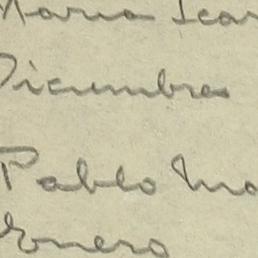 Maria Icar
Dicumbre
Pablo Mo
Enero